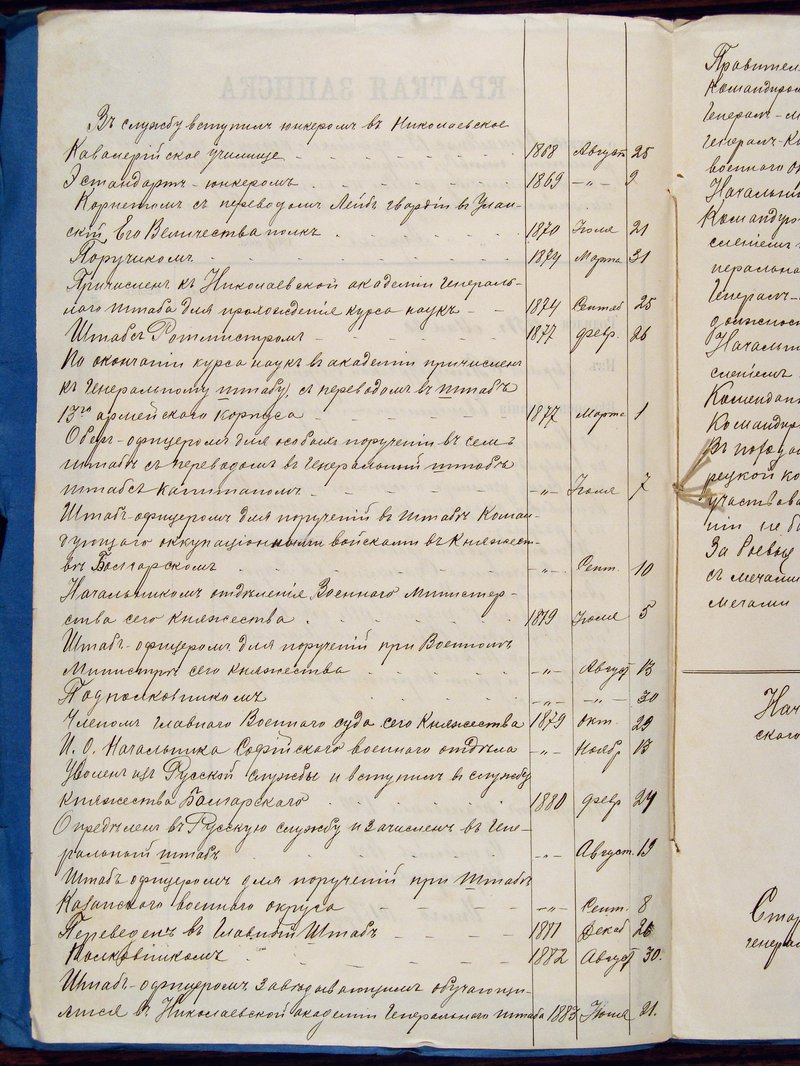 Въ службу вступилъ юнкеромъ въ Николаевское
Кавалерійское училище 1868 Август 25
Эстандартъ-юнкеромъ 1869 —„— 9
Корнетомъ съ переводомъ Лейбъ гвардіи в Улан-
скій Его Величества полкъ 1870 Іюля 21
Поручикомъ 1874 Марта 31
Причисленъ къ Николаевской академіи Генераль-
наго штаба для прохожденія курса наукъ 1874 Сентяб 25
Штабсъ Ротмистромъ 1877 февр. 26
По окончаніи курса наукъ въ академіи причисленъ
къ Генеральному штабу, съ переводомъ въ штабъ
13го армейскаго корпуса 1877 Марта 1
Оберъ-офицеромъ для особыхъ порученій въ семъ
штабѣ съ переводомъ въ Генеральный штабъ
штабсъ капитаномъ —„— Іюля 7
Штабъ-офицеромъ для порученій въ штабѣ Коман-
дующаго оккупаціонными войсками въ Княжест-
вѣ Болгарскомъ —„— Сент. 10
Начальникомъ отдѣленія Военнаго Министер-
ства сего княжества 1879 Іюля 5
Штабъ-офицеромъ для порученій при Военномъ
Министрѣ сего княжества —„— Август 13
Подполковникомъ —„— —„— 30
Членомъ главнаго Военнаго суда сего Княжества 1879 окт. 29
И. О. Начальника Софійскаго военнаго отдѣла —„— Ноябр 13
Уволенъ изъ Русской службы и вступилъ въ службу
княжества Болгарскаго 1880 февр 24
Опредѣленъ въ Русскую службу и зачисленъ въ Гене-
ральный штабъ —„— Август. 19
Штабъ офицеромъ для порученій при Штабѣ
Казанскаго военнаго округа —„— Сент. 8
Переведенъ въ Главный Штабъ 1881 Декаб 26
Полковникомъ 1882 Август 30.
Штабъ-офицеромъ завѣдывающимъ обучающи-
мися въ Николаевской академіи Генеральнаго штаба 1883 Іюня 21.
Правител
Командиром
Генералъ-м
Генералъ-К
военнаго ок
Начальни
Командую
сленіемъ
неральна
Генералъ-
должност
Начальн
сленіемъ
Комендан
Командир
Въ поход
рецкой ко
участвова
ніи не бы
За боевые
съ мечами
мечами
Нач
скаго
Стар
генерал